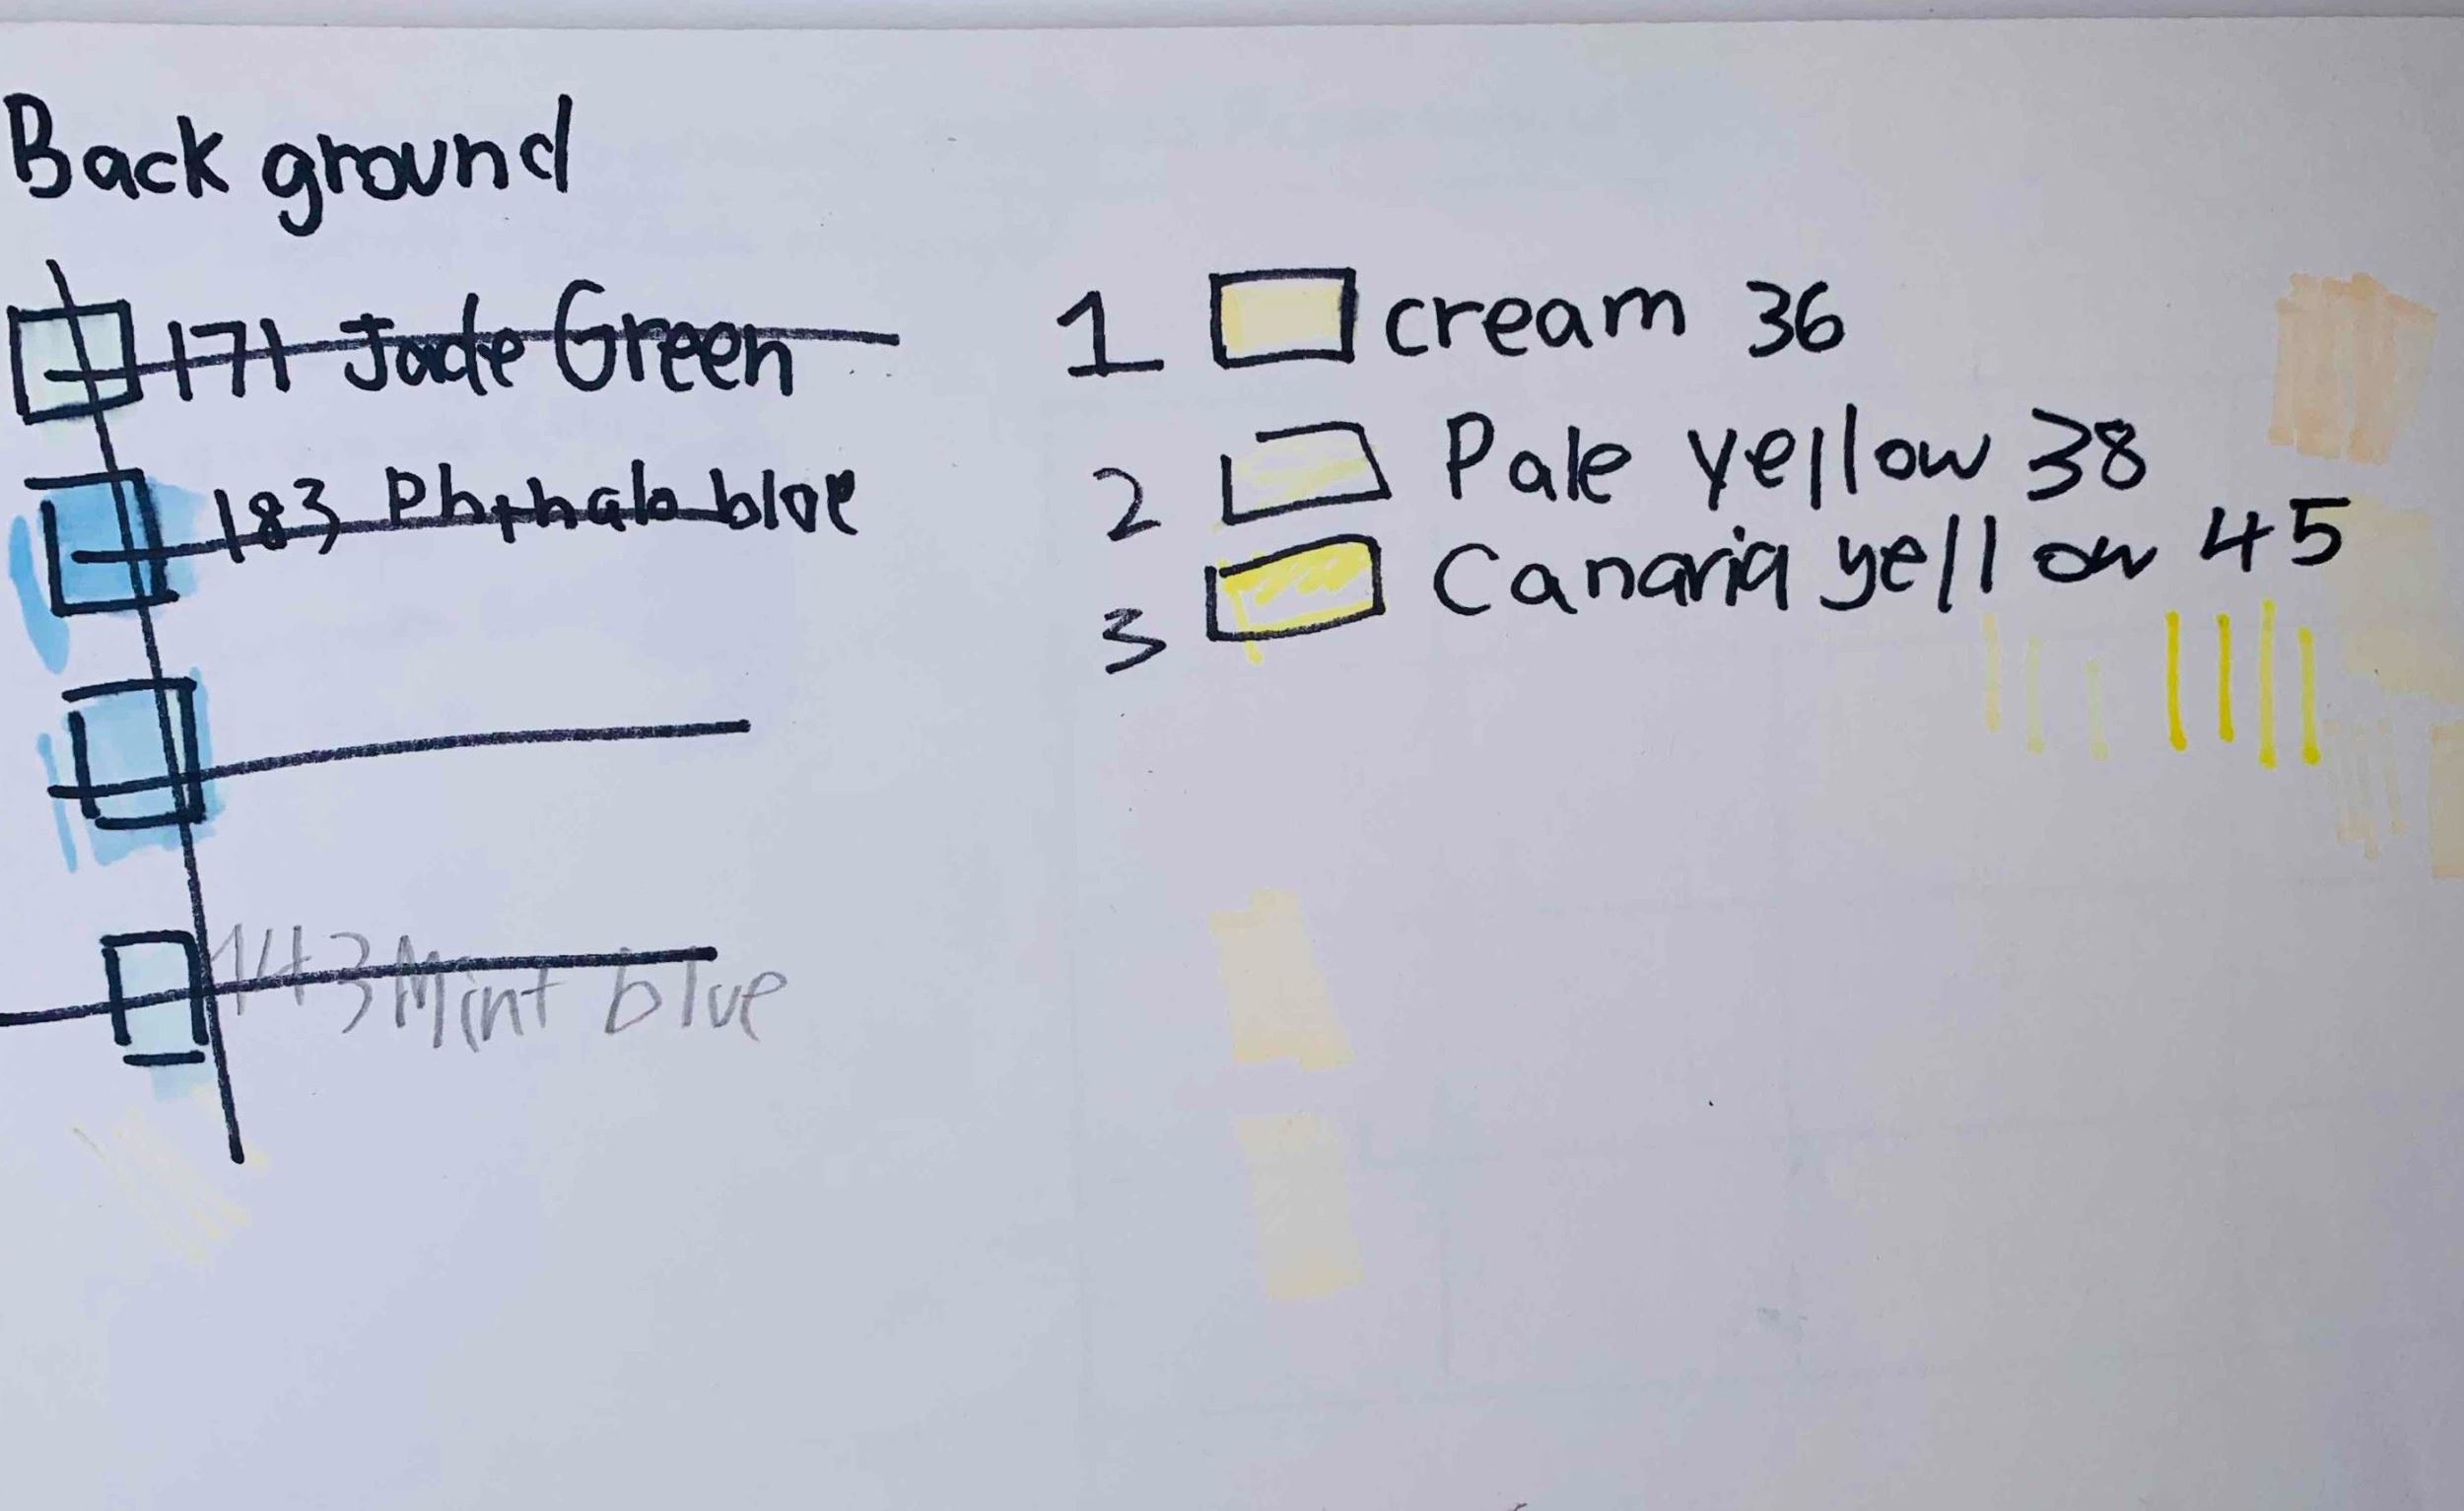 Back ground
171 Jade Green
183 Phthalo blue
143 Mint blue
1 cream 36
2 Pale yellow 38
3 Canaria yellow 45